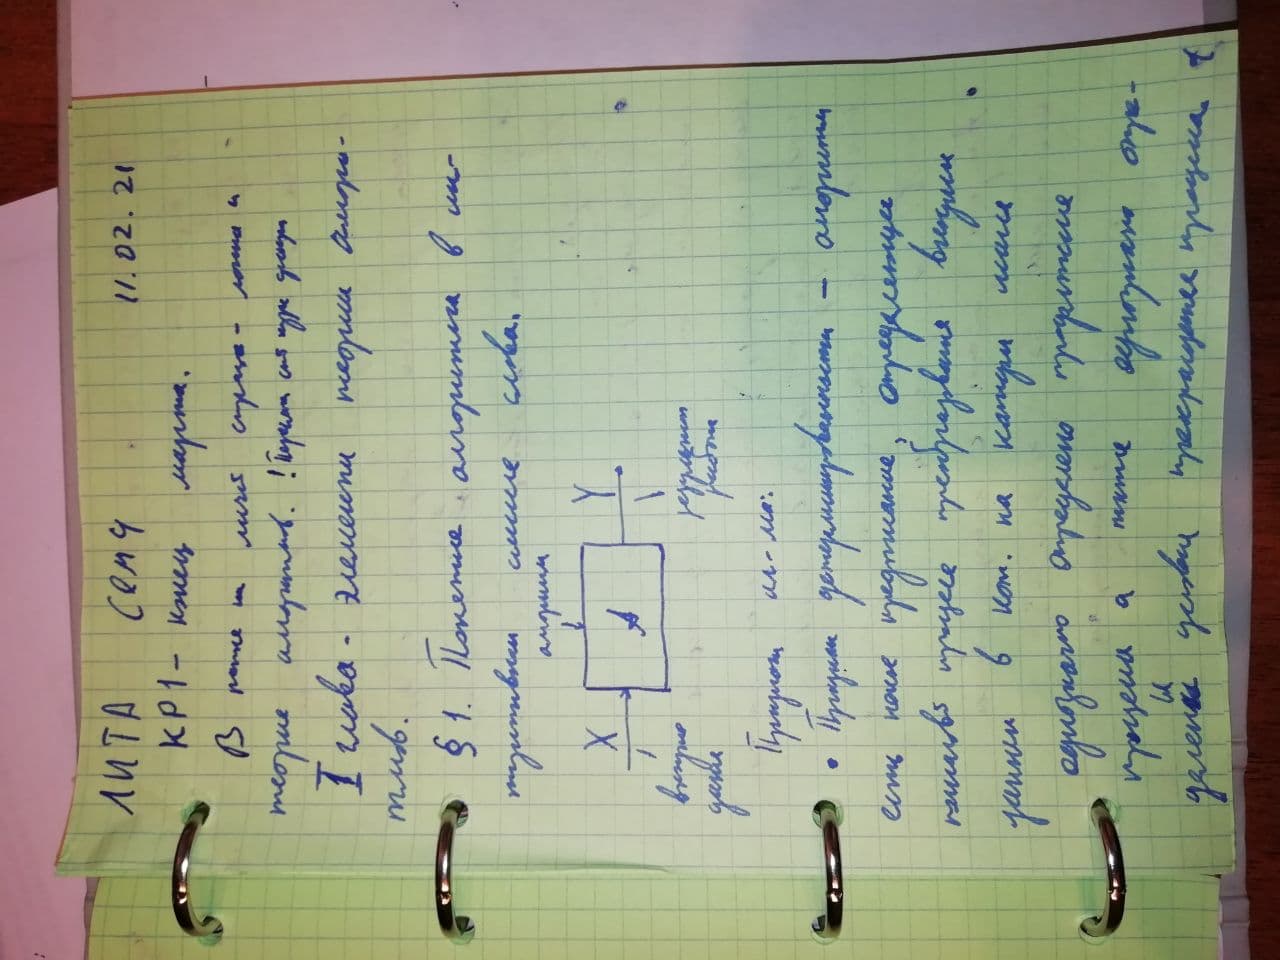 ЛИТА Сем 4 11.02.21
КР1 - конец марта.
В папке на
теория алгоритмов. !
I глава - элементы теории алгори-
тмов.
§1. Понятие алгоритма в ин-
туитивном смысле слова.
алгоритм
X A Y
входные результат
данные работы
Признаки ал-ма:
• Признак детерминированности - алгоритм
есть предписание, определяющее
пошаговый процесс преобразования входных
данных в кот. на каждом шаге
однозначно определено продолжение
процесса а также однозначно опре-
делены условия прекращения процесса.